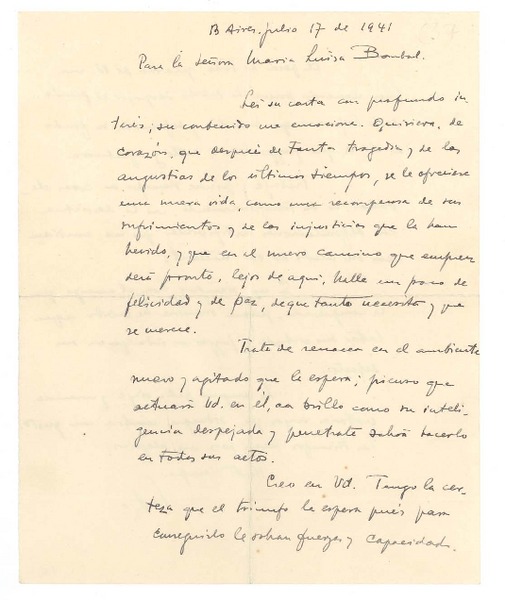 B Aires. julio 17 de 1941
Para la Señora Maria Luisa Bombal.
Leí su carta con profundo in-
terés; su contenido me emociona. Quisiera, de
corazón, que después de tanta tragedia y de las
angustias de los últimos tiempos, se le ofreciese
una nueva vida, como una recompensa de sus
sufrimientos y de las injusticias que la han
herido, y que en el nuevo camino que empren-
derá pronto, lejos de aquí, halle un poco de
felicidad y de paz, de que tanto necesita y que
se merece.
Trate de renacer en el ambiente
nuevo y agitado que la espera; pienso que
actuará Ud. en él, con brillo como su inteli-
gencia despejada y penetrate sabrá hacerlo
en todos sus actos.
Creo en Ud. Tengo la cer-
teza que el triunfo la espera pués para
conseguirlo le sobran fuerzas y capacidad.